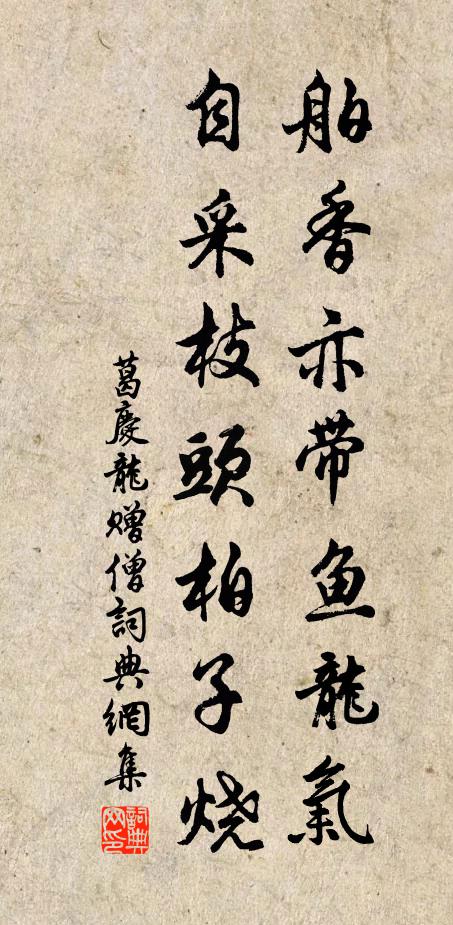 舶香亦带鱼龍氣
自采枝頭柏子燒
葛慶龍贈僧詞典網集
詞典网印